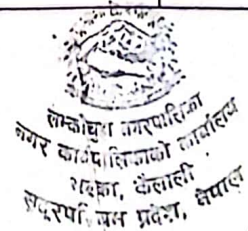 लम्कीचुहा नगरपालिका
नगर कार्यपालिकाको कार्यालय
बल्चौर, कैलाली
सुदूरपश्चिम प्रदेश, नेपाल